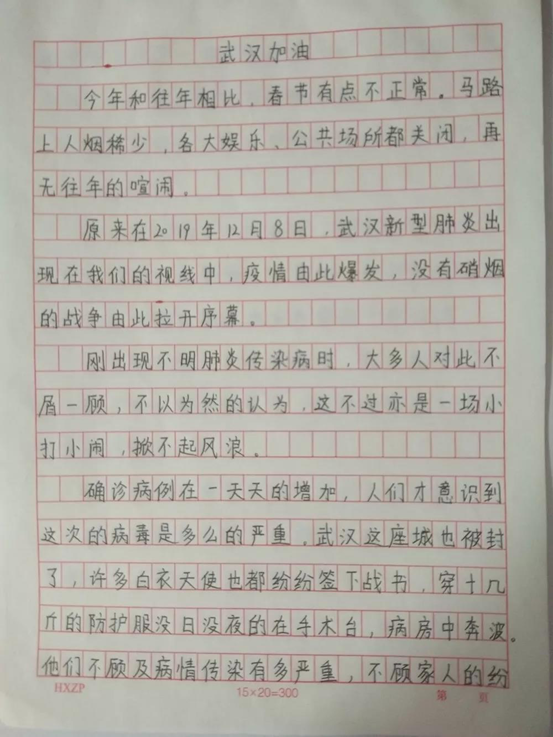 武汉加油
今年和往年相比，春节有点不正常。马路
上人烟稀少，各大娱乐、公共场所都关闭，再
无往年的喧闹。
原来在2019年12月8日，武汉新型肺炎出
现在我们的视线中，疫情由此爆发，没有硝烟
的战争由此拉开序幕。
刚出现不明肺炎传染病时，大多人对此不
屑一顾，不以为然的认为，这不过亦是一场小
打小闹，掀不起风浪。
确诊病例在一天天的增加，人们才意识到
这次的病毒是多么的严重，武汉这座城也被封
了，许多白衣天使也都纷纷签下战书，穿十几
斤的防护服没日没夜的在手术台，病房中奔波。
他们不顾及病情传染有多严重，不顾家人的纷
HXZP
15×20=300
第 页